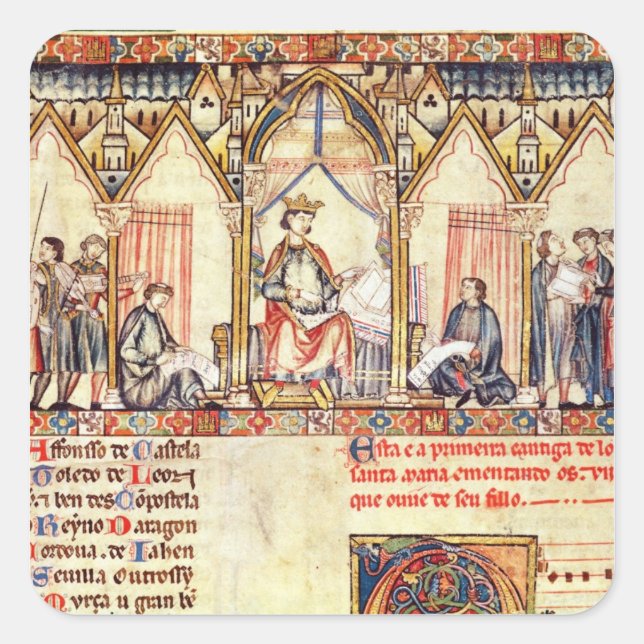 Affonsso de Castela
Toledo de Leon
ben des Cōpostela
Reyno Daragon
Cordoua. de Iahen
Seuilla Outrossy
u gran bē
Esta e a primeira cantiga de lo
santa maria ementando os. vij
que ouue de seu fillo.